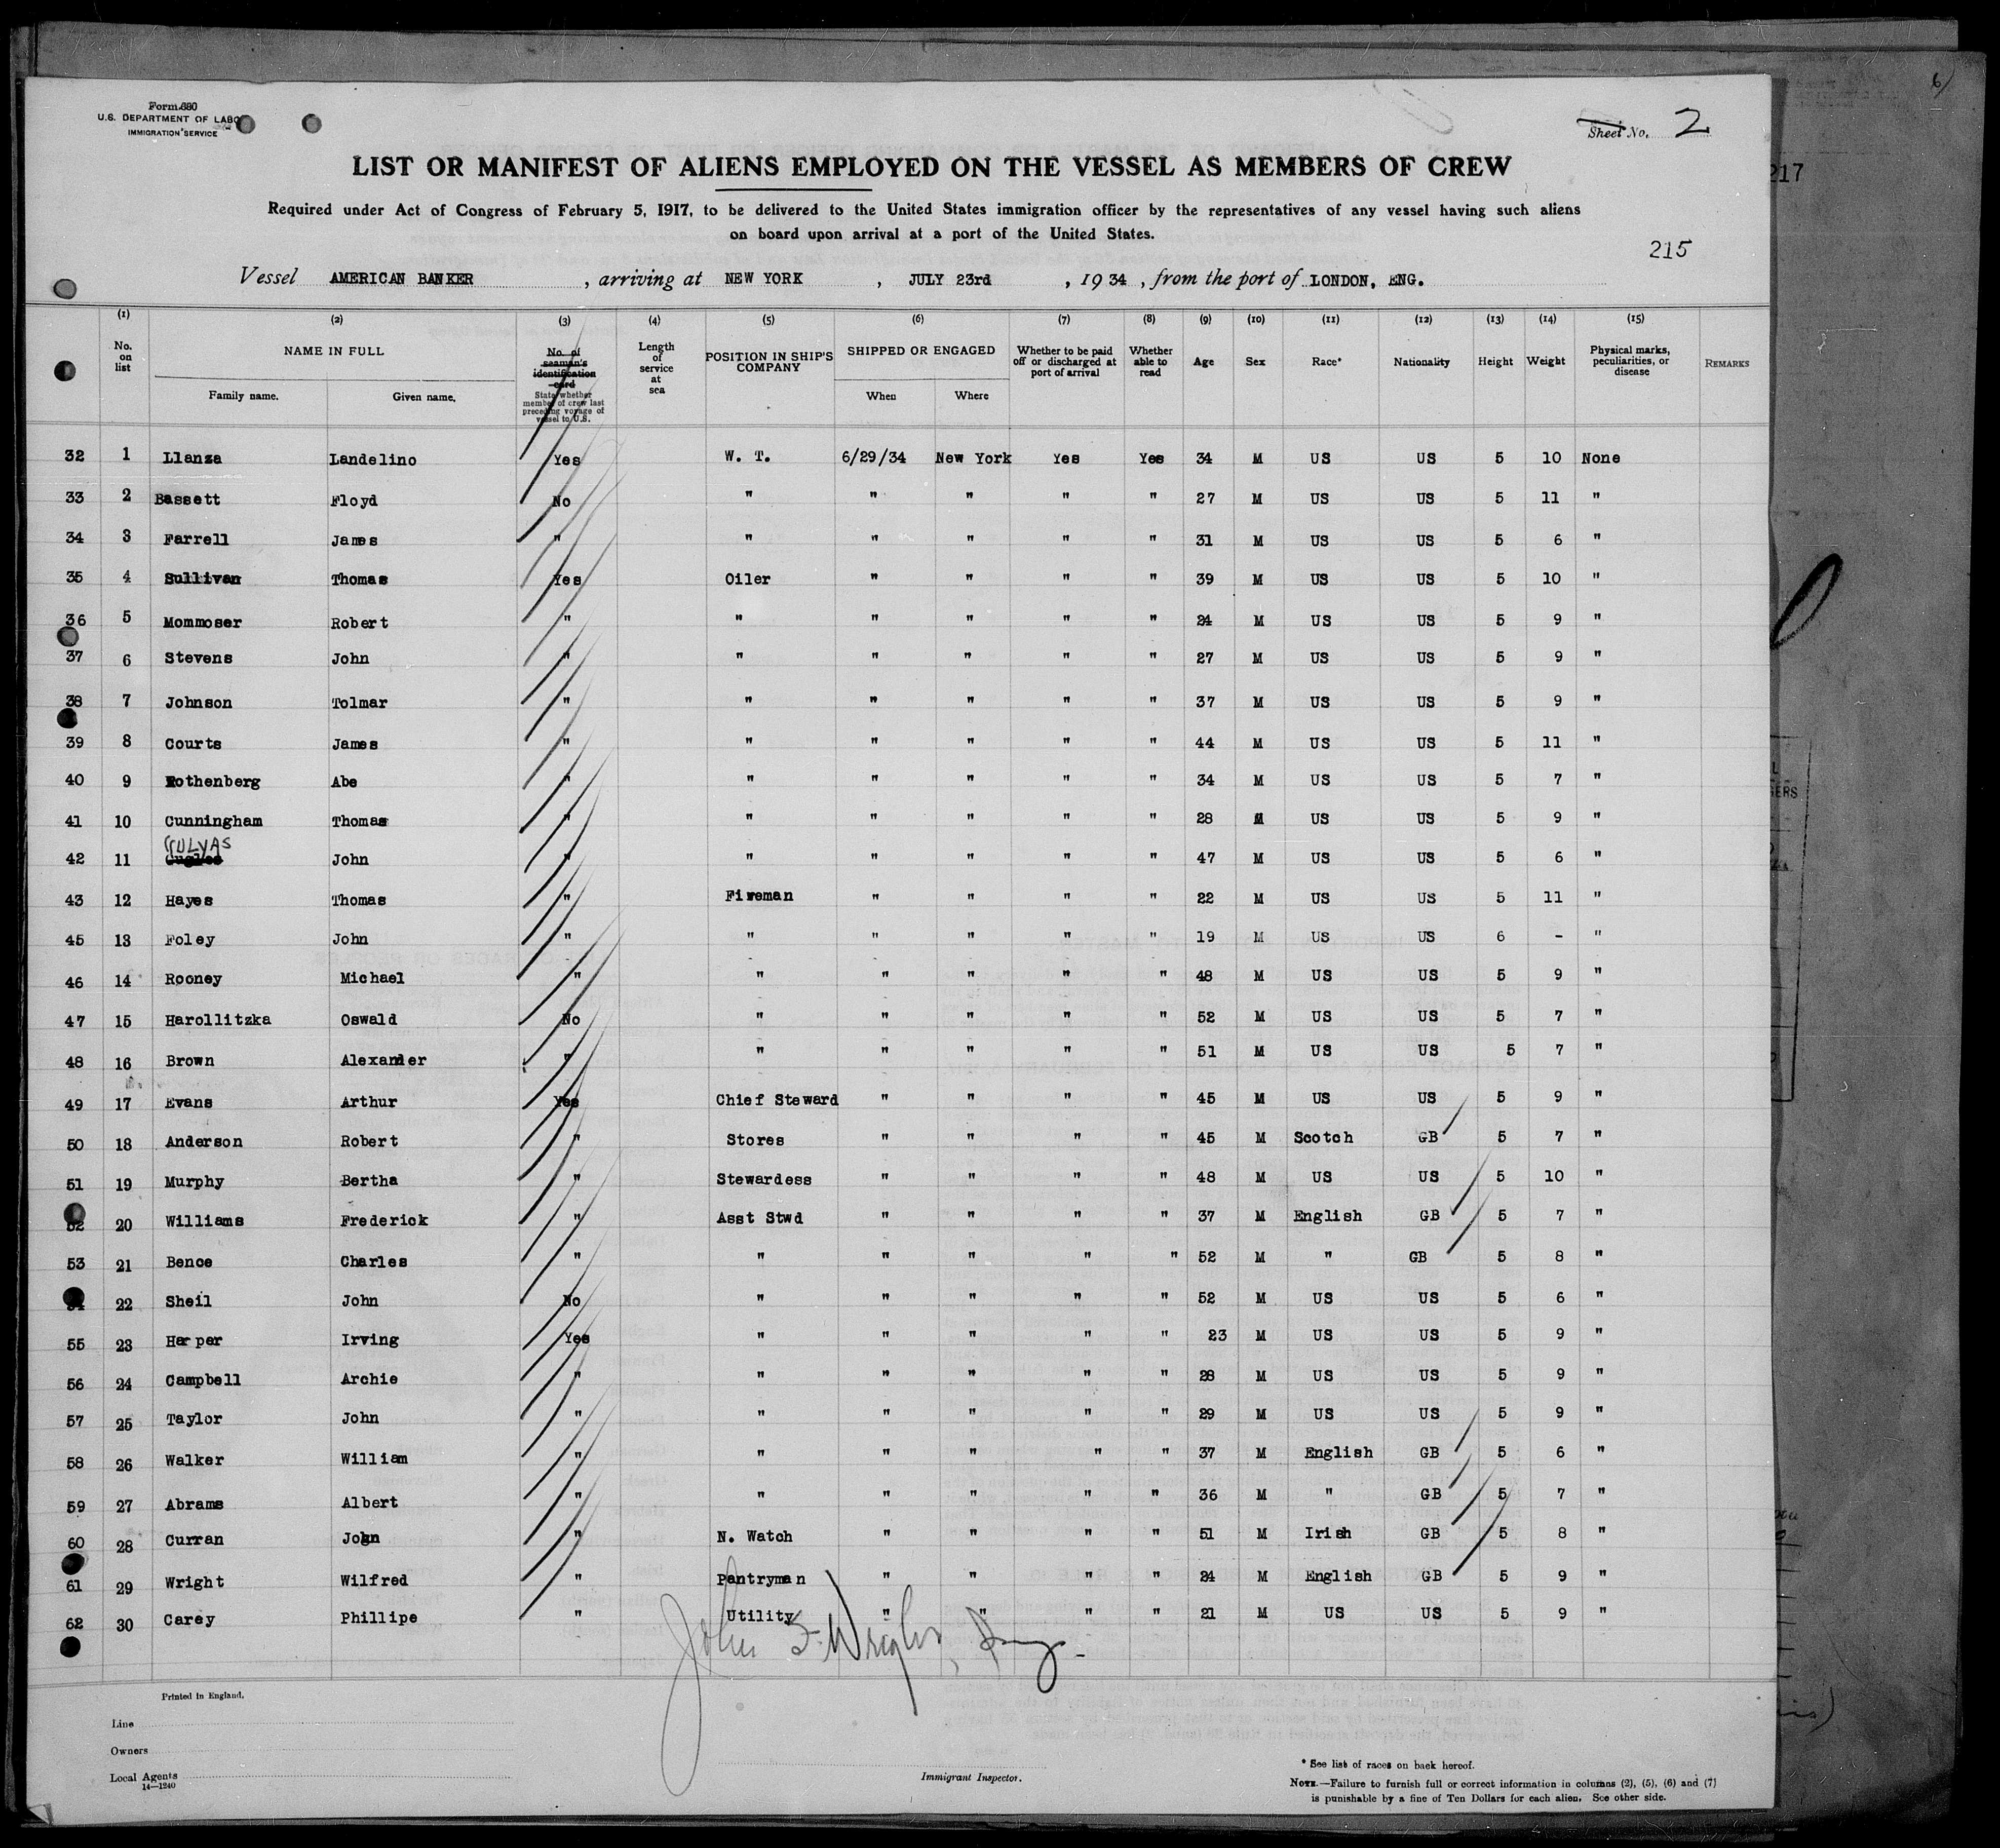 Form 680
U.S. DEPARTMENT OF LABOR
IMMIGRATION SERVICE
Sheet No. 2
LIST OR MANIFEST OF ALIENS EMPLOYED ON THE VESSEL AS MEMBERS OF CREW
Required under Act of Congress of February 5, 1917, to be delivered to the United States immigration officer by the representatives of any vessel having such aliens
on board upon arrival at a port of the United States.
217
215
Vessel AMERICAN BANKER, arriving at NEW YORK, JULY 23rd, 1934, from the port of LONDON, ENG.
(1) (2) (3) (4) (5) (6) (7) (8) (9) (10) (11) (12) (13) (14) (15)
No. on list NAME IN FULL Family name. Given name. No. of seaman's identification card State whether member of crew last preceding voyage of vessel to U.S. Length of service at sea POSITION IN SHIP'S COMPANY SHIPPED OR ENGAGED When Where Whether to be paid off or discharged at port of arrival Whether able to read Age Sex Race* Nationality Height Weight Physical marks, peculiarities, or disease REMARKS
32 1 Llanza Landelino Yes W. T. 6/29/34 New York Yes Yes 34 M US US 5 10 None
33 2 Bassett Floyd No " " " " " 27 M US US 5 11 "
34 3 Farrell James " " " " " " 31 M US US 5 6 "
35 4 Sullivan Thomas Yes Oiler " " " " 39 M US US 5 10 "
36 5 Mommoser Robert " " " " " " 24 M US US 5 9 "
37 6 Stevens John " " " " " " 27 M US US 5 9 "
38 7 Johnson Tolmar " " " " " " 37 M US US 5 9 "
39 8 Courts James " " " " " " 44 M US US 5 11 "
40 9 Rothenberg Abe " " " " " " 34 M US US 5 7 "
41 10 Cunningham Thomas " " " " " " 28 M US US 5 9 "
42 11 GULYAS John " " " " " " 47 M US US 5 6 "
43 12 Hayes Thomas " Fireman " " " " 22 M US US 5 11 "
45 13 Foley John " " " " " " 19 M US US 6 - "
46 14 Rooney Michael " " " " " " 48 M US US 5 9 "
47 15 Harollitzka Oswald No " " " " " 52 M US US 5 7 "
48 16 Brown Alexander " " " " " " 51 M US US 5 7 "
49 17 Evans Arthur Yes Chief Steward " " " " 45 M US US 5 9 "
50 18 Anderson Robert " Stores " " " " 45 M Scotch GB 5 7 "
51 19 Murphy Bertha " Stewardess " " " " 48 M US US 5 10 "
52 20 Williams Frederick " Asst Stwd " " " " 37 M English GB 5 7 "
53 21 Bence Charles " " " " " " 52 M " GB 5 8 "
54 22 Sheil John No " " " " " 52 M US US 5 6 "
55 23 Harper Irving Yes " " " " " 23 M US US 5 9 "
56 24 Campbell Archie " " " " " " 28 M US US 5 9 "
57 25 Taylor John " " " " " " 29 M US US 5 9 "
58 26 Walker William " " " " " " 37 M English GB 5 6 "
59 27 Abrams Albert " " " " " " 36 M " GB 5 7 "
60 28 Curran Jogn " N. Watch " " " " 51 M Irish GB 5 8 "
61 29 Wright Wilfred " Pantryman " " " " 24 M English GB 5 9 "
62 30 Carey Phillipe " Utility " " " " 21 M US US 5 9 "
John S. Wright,
Printed in England.
Line
Owners
Local Agents
14—1240
Immigrant Inspector.
* See list of races on back hereof.
NOTE.—Failure to furnish full or correct information in columns (2), (5), (6) and (7)
is punishable by a fine of Ten Dollars for each alien. See other side.